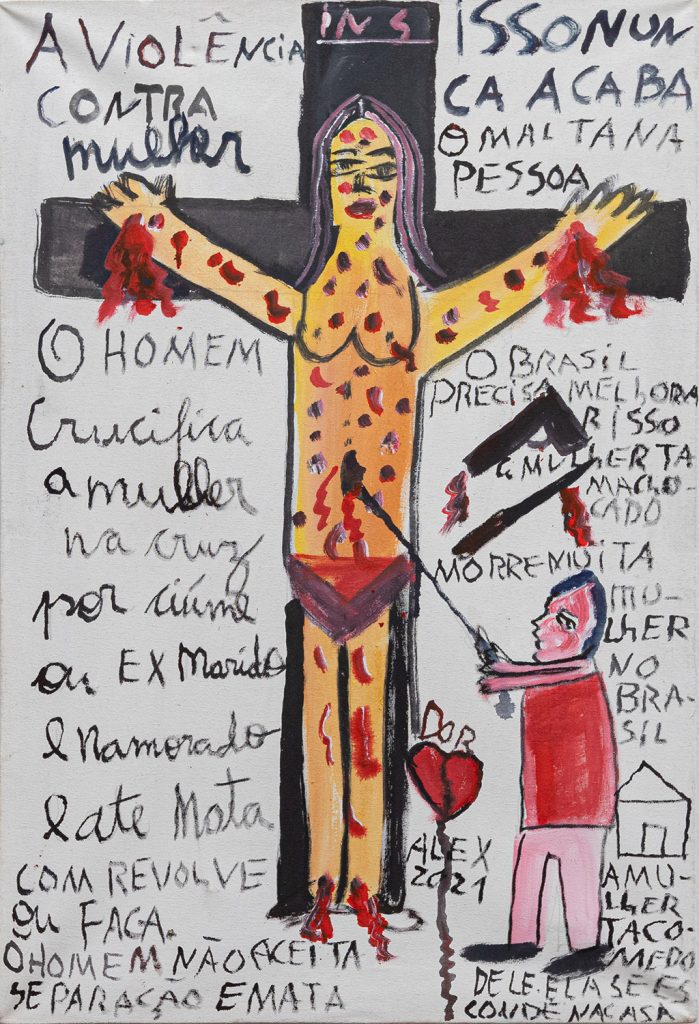 A VIOLÊNCIA
CONTRA
mulher
INS
ISSO NUN
CA ACABA
O MAL TA NA
PESSOA
O HOMEM
Crucifica
a mulher
na cruz
por ciúme
ou EX Marido
e Namorado
e ate Mata
COM REVOLVE
OU FACA.
O HOMEM NÃO ACEITA
SEPARAÇÃO E MATA
O BRASIL
PRECISA MELHORA
R ISSO
A MULHER TA
MACHO-
CADO
MORRE MUITA
MU-
LHER
NO
BRA-
SIL
DOR
ALEX
2021
A MU-
LHER
TA CO-
MEDO
DELE. ELA SE ES
CONDE NA CASA